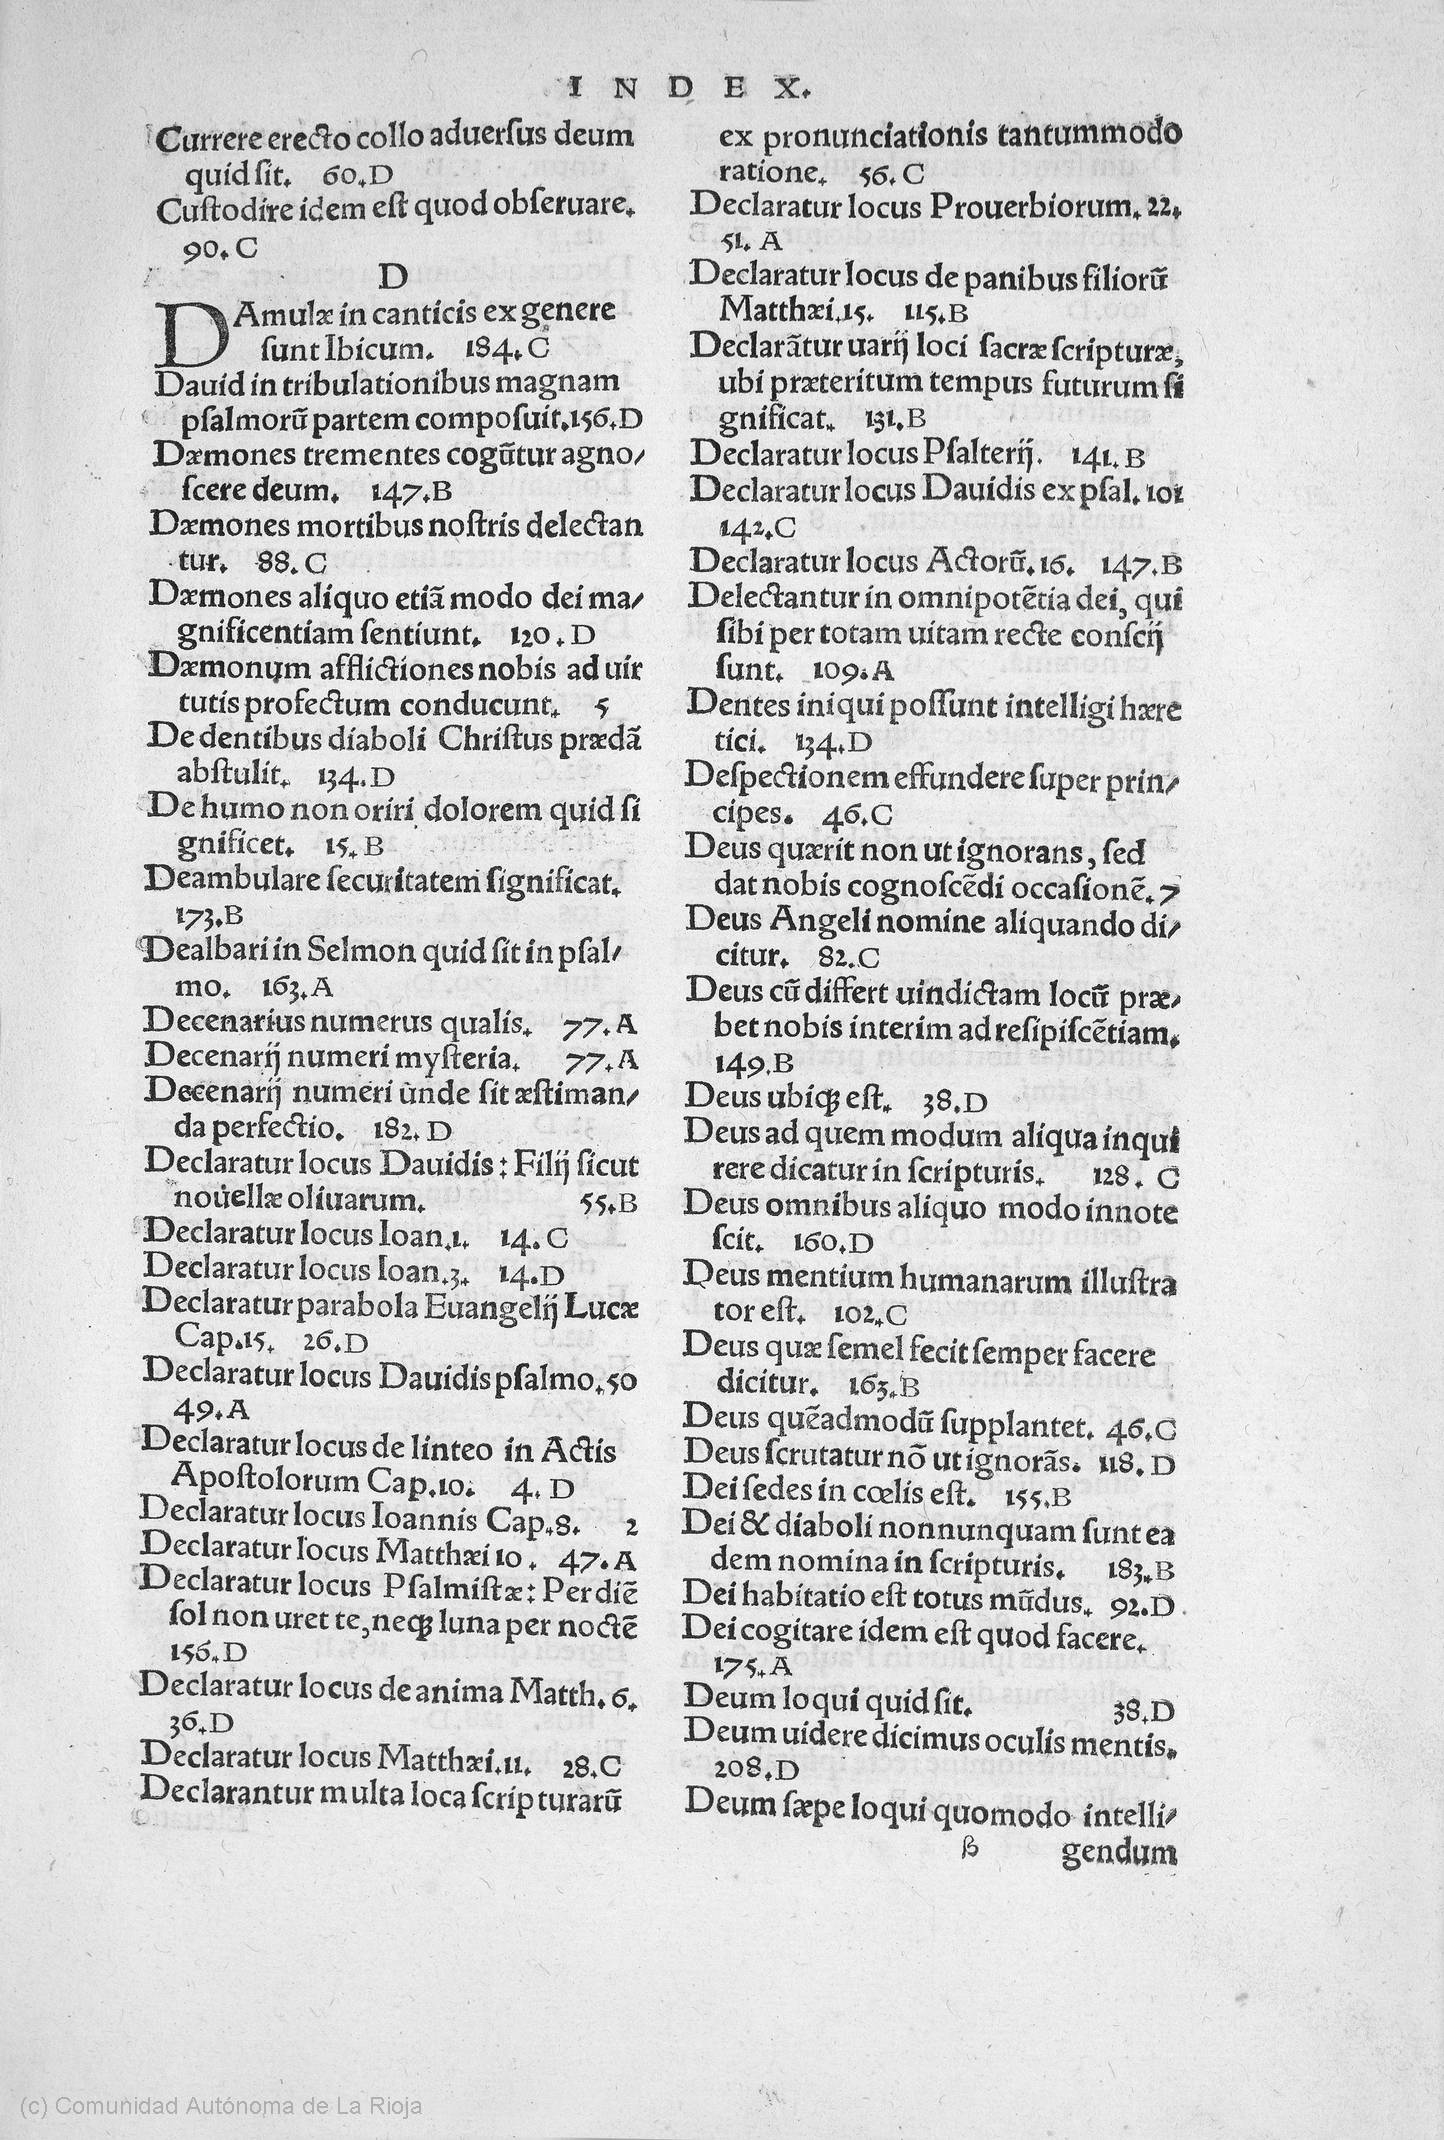 INDEX.
Currere erecto collo aduerſus deum
quid ſit. 60.D
Cuſtodire idem eſt quod obſeruare.
90.C
D
DAmulæ in canticis ex genere
ſunt Ibicum. 184.C
Dauid in tribulationibus magnam
pſalmorũ partem compoſuit.156.D
Dæmones trementes cogũtur agno/
ſcere deum. 147.B
Dæmones mortibus noſtris delectan
tur. 88.C
Dæmones aliquo etiã modo dei ma/
gnificentiam ſentiunt. 120.D
Dæmonum afflictiones nobis ad uir
tutis profectum conducunt. 5
De dentibus diaboli Chriſtus prædã
abſtulit. 134.D
De humo non oriri dolorem quid ſi
gnificet. 15.B
Deambulare ſecuritatem ſignificat.
173.B
Dealbari in Selmon quid ſit in pſal/
mo. 163.A
Decenarius numerus qualis. 77.A
Decenarij numeri myſteria. 77.A
Decenarij numeri ùnde ſit æſtiman/
da perfectio. 182.D
Declaratur locus Dauidis: Filij ſicut
nouellæ oliuarum. 55.B
Declaratur locus Ioan.1. 14.C
Declaratur locus Ioan.3. 14.D
Declaratur parabola Euangelij Lucæ
Cap.15. 26.D
Declaratur locus Dauidis pſalmo.50
49.A
Declaratur locus de linteo in Actis
Apoſtolorum Cap.10. 4.D
Declaratur locus Ioannis Cap.8. 2
Declaratur locus Matthæi 10. 47.A
Declaratur locus Pſalmiſtæ: Per diẽ
ſol non uret te, neqꝫ luna per noctẽ
156.D
Declaratur locus de anima Matth.6.
36.D
Declaratur locus Matthæi.11. 28.C
Declarantur multa loca ſcripturarũ
ex pronunciationis tantummodo
ratione. 56.C
Declaratur locus Prouerbiorum.22.
51.A
Declaratur locus de panibus filiorũ
Matthæi.15. 115.B
Declarãtur uarij loci ſacræ ſcripturæ,
ubi præteritum tempus futurum ſi
gnificat. 131.B
Declaratur locus Pſalterij. 141.B
Declaratur locus Dauidis ex pſal.101
142.C
Declaratur locus Actorũ.16. 147.B
Delectantur in omnipotẽtia dei, qui
ſibi per totam uitam recte conſcij
ſunt. 109.A
Dentes iniqui poſſunt intelligi hære
tici. 134.D
Deſpectionem effundere ſuper prin/
cipes. 46.C
Deus quærit non ut ignorans, ſed
dat nobis cognoſcẽdi occaſionẽ.7
Deus Angeli nomine aliquando di/
citur. 82.C
Deus cũ differt uindictam locũ præ/
bet nobis interim ad reſipiſcẽtiam.
149.B
Deus ubiqꝫ eſt. 38.D
Deus ad quem modum aliqua inqui
rere dicatur in ſcripturis. 128. C
Deus omnibus aliquo modo innote
ſcit. 160.D
Deus mentium humanarum illuſtra
tor eſt. 102.C
Deus quæ ſemel fecit ſemper facere
dicitur. 163.B
Deus quẽadmodũ ſupplantet. 46.C
Deus ſcrutatur nõ ut ignorãs. 118.D
Dei ſedes in cœlis eſt. 155.B
Dei & diaboli nonnunquam ſunt ea
dem nomina in ſcripturis. 183.B
Dei habitatio eſt totus mũdus. 92.D.
Dei cogitare idem eſt quod facere.
175.A
Deum loqui quid ſit. 38.D
Deum uidere dicimus oculis mentis.
208.D
Deum ſæpe loqui quomodo intelli/
β gendum
(c) Comunidad Autónoma de La Rioja